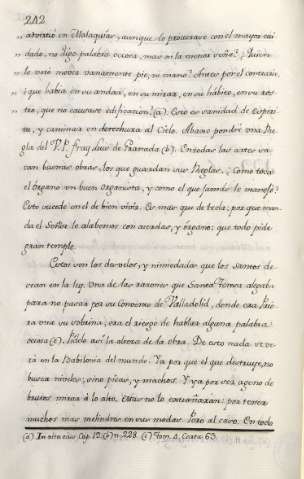 242
" aprontò en Malaquias, aunque lo procurase con el mayor cui-
" dado, no digo palabra ociosa, mas ni la menor ocio? Quién
" le vió mover vanamente pie, ni mano? Antes por el contrario,
" què habia en su andar, en su mirar, en su hábito, en su ros-
" tro, que no causase edificacion? (a). Esto es vanidad de espiri-
tu, y caminar en derechura al Cielo. Ahora pondré una Re-
gla del V.P. fray Luis de Granada (b). En todas las artes sa-
can buenas obras, los que guardan sus Reglas. Como toca
el órgano un buen Organista, y como el que jamás le manejó?
Esto sucede en el de bien vivir. Es mas que de tecla; por que man-
da el Señor le alabemos con cuerdas, y órgano; que todo pide
gran temple.
Estas son las de los, y nimiedades que los Santos de-
cian en la ley. Una de las razones que Santa Teresa alegaba
para no pasar por su Convento de Valladolid, donde era Prio-
ra una su sobrina, era el riesgo de hablar alguna palabra
ociosa (c). Hacelo así la abeja de la obra. De esto nada se ve-
rá en la Babilonia del mundo. Ya por que el que destruye, no
busca niveles, sino picas, y machos. Y ya por ser ageno de
brutos mirar á lo alto. Estas no lo extrañaran; por tener
muchos mas melindres en sus modas. Pero al caso. En todo
(a) In vita ejus Cap. 19. (b) n. 228. (c) Tom. 4. Carta 63.